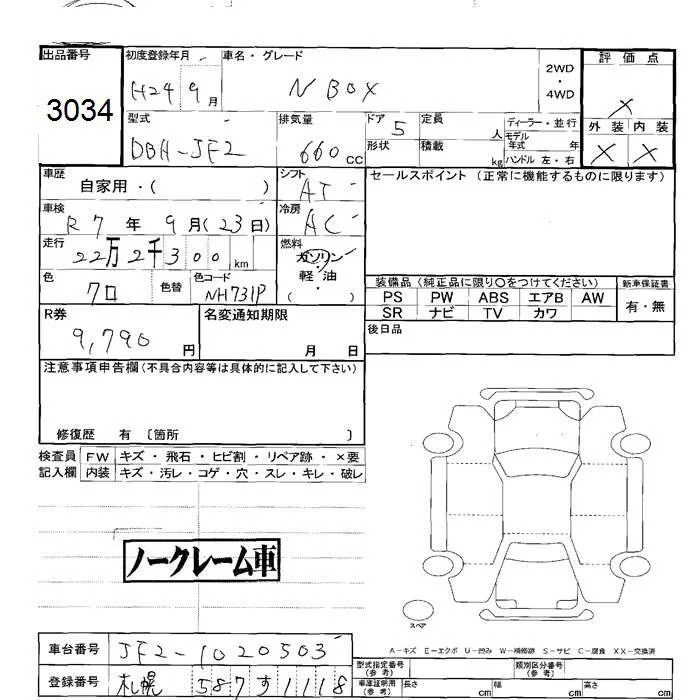 出品番号
3034
初度登録年月
H24 9月
車名・グレード
N BOX
2WD
・
4WD
評価点
×
外装 内装
× ×
型式
DBA-JF2
排気量
660 cc
ドア 5
形状
定員 人
積載 kg
ディーラー・並行
モデル年式 年
ハンドル 左・右
車歴
自家用・( )
シフト
AT
セールスポイント (正常に機能するものに限ります)
車検
R7年 9月(23日)
冷房
AC
走行
22万2千300km
燃料
ガソリン
・
軽油
・
( )
色
クロ
色替
色コード
NH731P
装備品 (純正品に限り○をつけてください)
PS PW ABS エアB AW
SR ナビ TV カワ
新車保証書
有・無
R券
9,790円
名変通知期限
月 日
後日品
注意事項申告欄(不具合内容等は具体的に記入して下さい)
修復歴 有 〔箇所 〕
検査員記入欄
FW キズ・飛石・ヒビ割・リペア跡・×要
内装 キズ・汚レ・コゲ・穴・スレ・キレ・破レ
ノークレーム車
スペア
A-キズ E-エクボ U-凹み W-補修跡 S-サビ C-腐食 XX-交換済
車台番号
JF2-1020503
登録番号
札幌 587す1118
型式指定番号(参考)
類別区分番号(参考)
車庫証明用(参考)
長さ cm
幅 cm
高さ cm